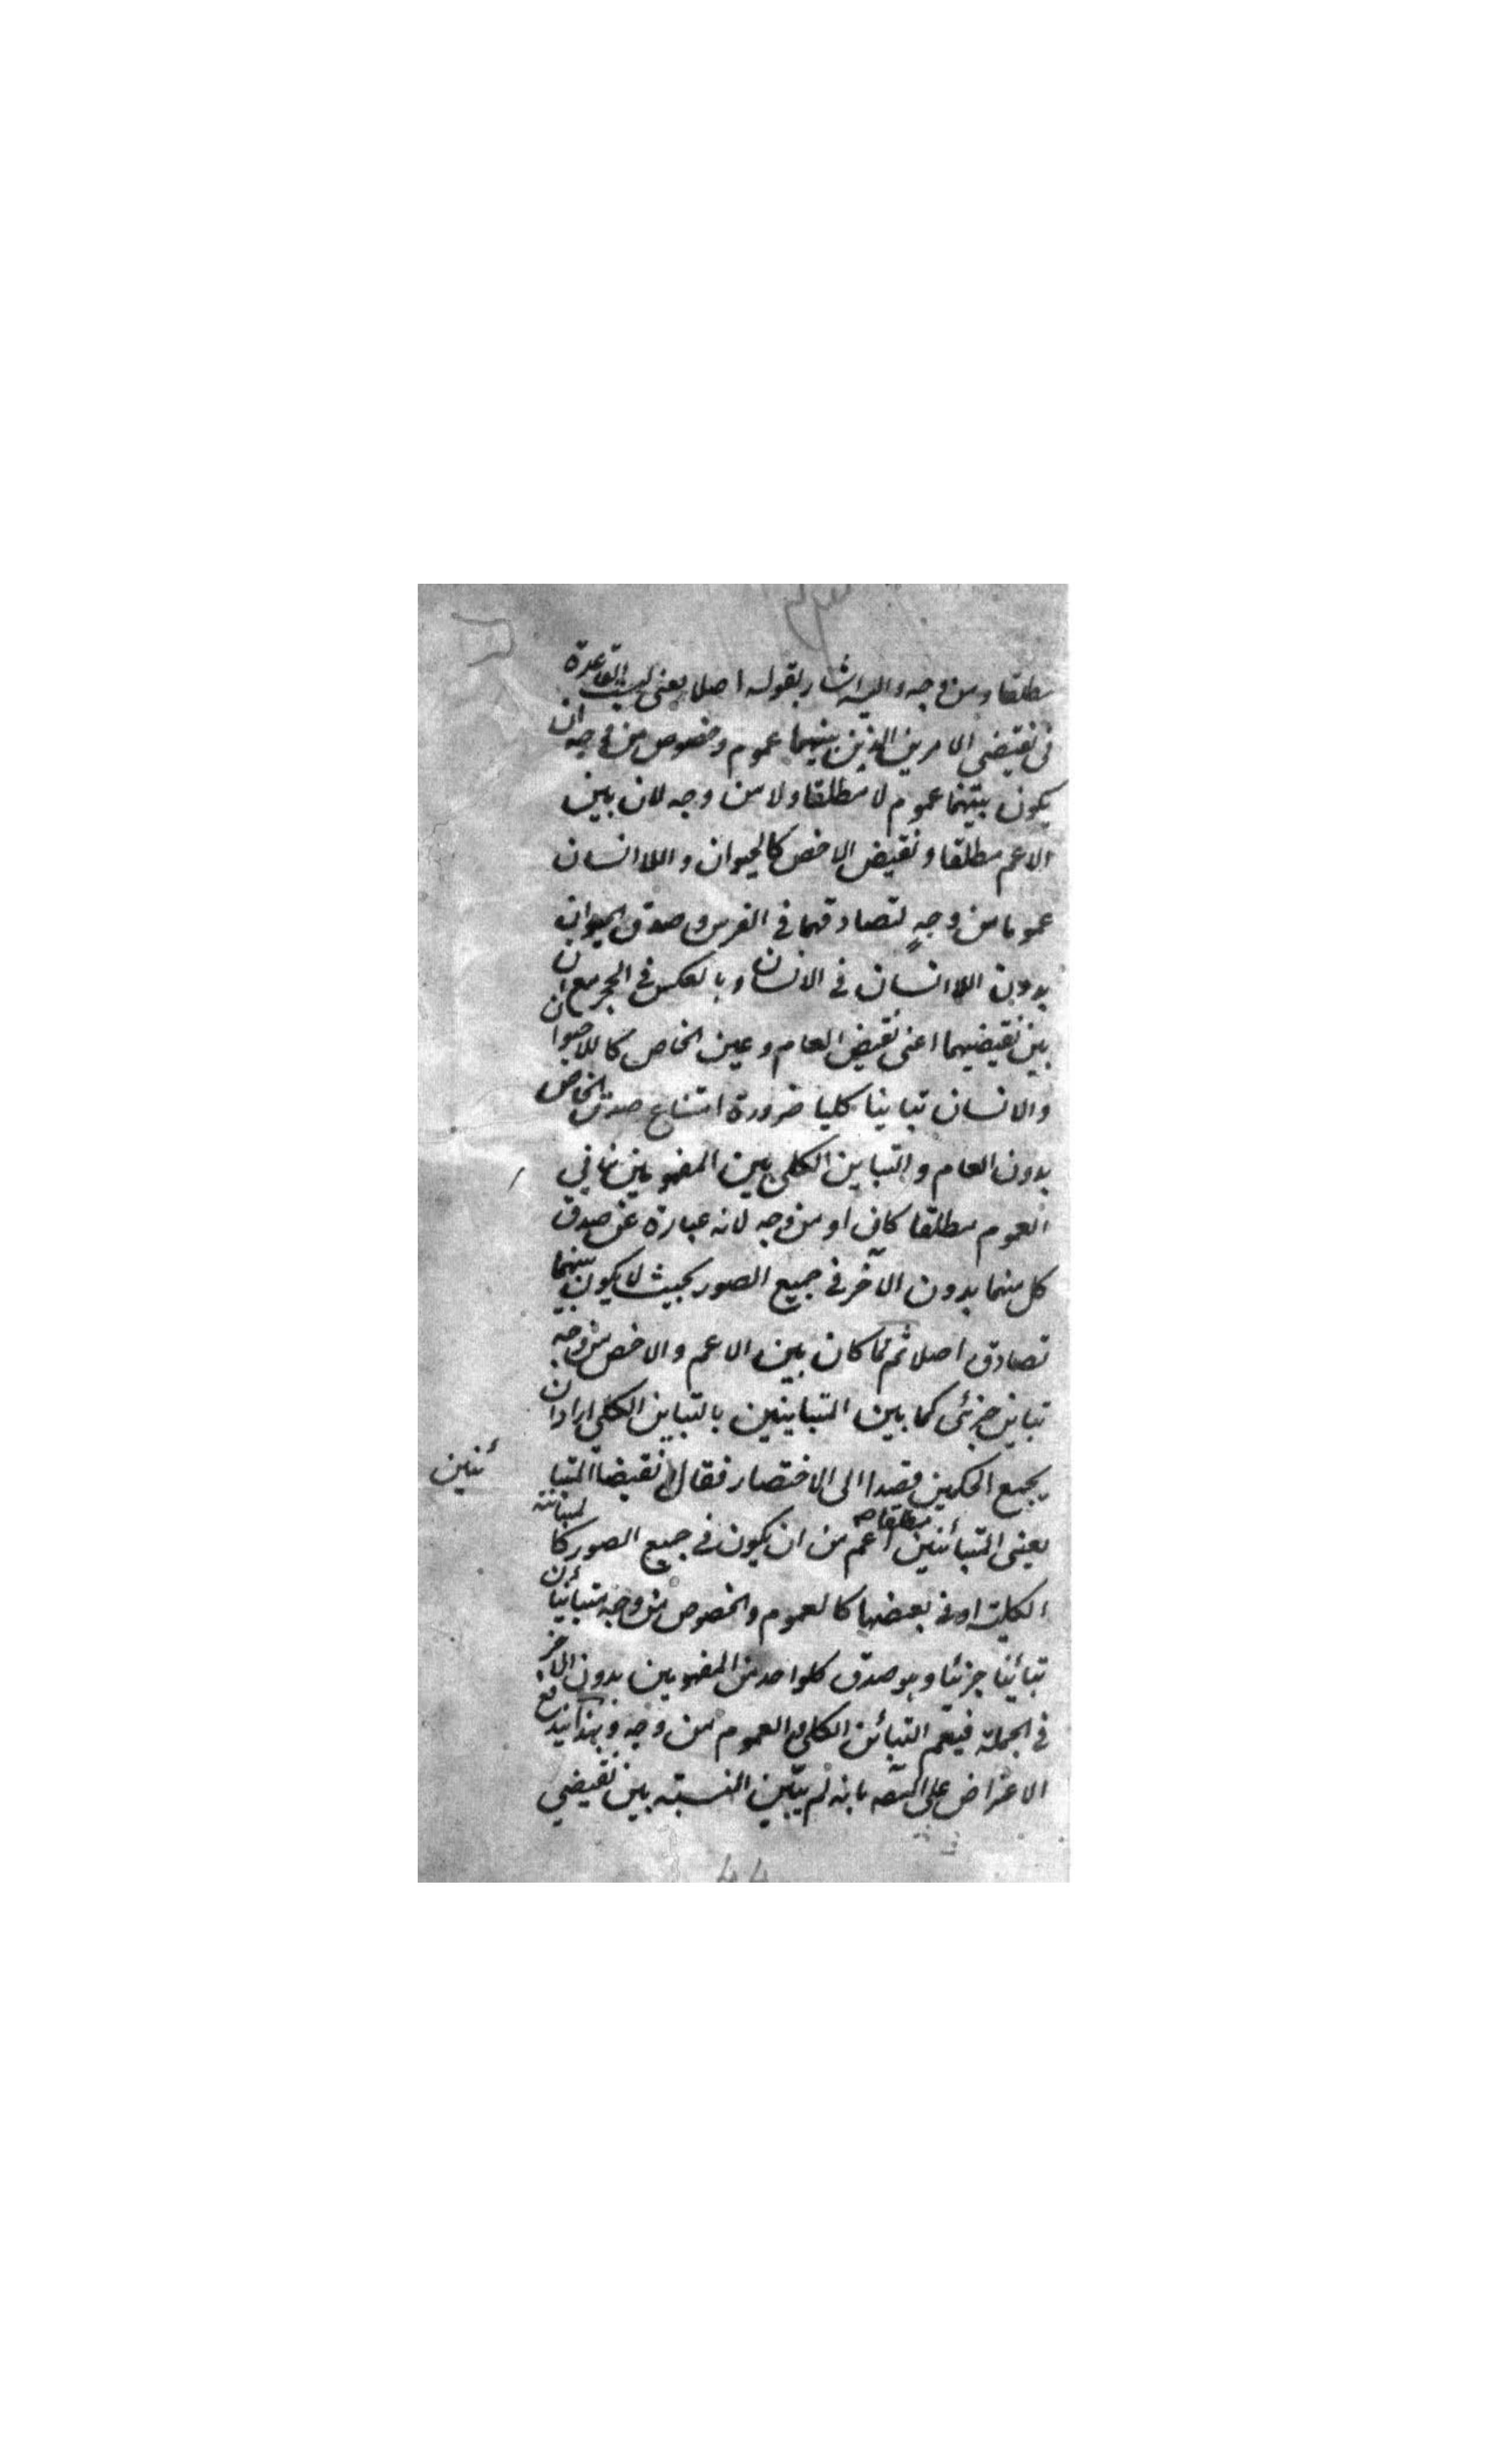 مطلقا ومن وجه واليه اشار بقوله اصلا يعني ليست القاعدة
في نقيضي الامرين الذين بينهما عموم وخصوص من وجه ان
يكون بينهما عموم لا مطلقا ولا من وجه لان بين
الاعم مطلقا ونقيض الاخص كالحيوان واللاانسان
عموما من وجهٍ لتصادقهما في الفرس وصدق الحيوان
بدون اللاانسان في الانسان وبالعكس في الحجر مع ان
بين نقيضيهما اعني نقيض العام وعين الخاص كاللاحيوان
والانسان تباينا كليا ضرورة امتناع صدق الخاص
بدون العام والتباين الكلي بين المفهومين ينافي
العموم مطلقا كان او من وجه لانه عبارة عن صدق
كل منهما بدون الآخر في جميع الصور بحيث لا يكون بينهما
تصادق اصلا ثم لما كان بين الاعم والاخص من وجه
تباين جزئي كما بين المتباينين بالتباين الكلي اراد ان
يجمع الحكمين قصدا الى الاختصار فقال نقيضا المتبا
ئنين
يعني المتبائنين مطلقا اعم من ان يكون في جميع الصور كالمباينة
الكلية او في بعضها كالعموم والخصوص من وجه متبائنان
تبائنا جزئيا وهو صدق كل واحد من المفهومين بدون الاخر
في الجملة فيعم التبائن الكلي والعموم من وجه وبهذا يندفع
الاعتراض على المصه بانه لم يبين النسبته بين نقيضي